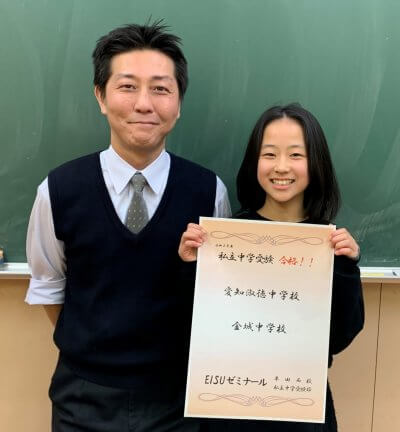 私立中学受験 合格！！
愛知淑徳中学校
金城中学校
EISUゼミナール 半田西校
私立中学受験科